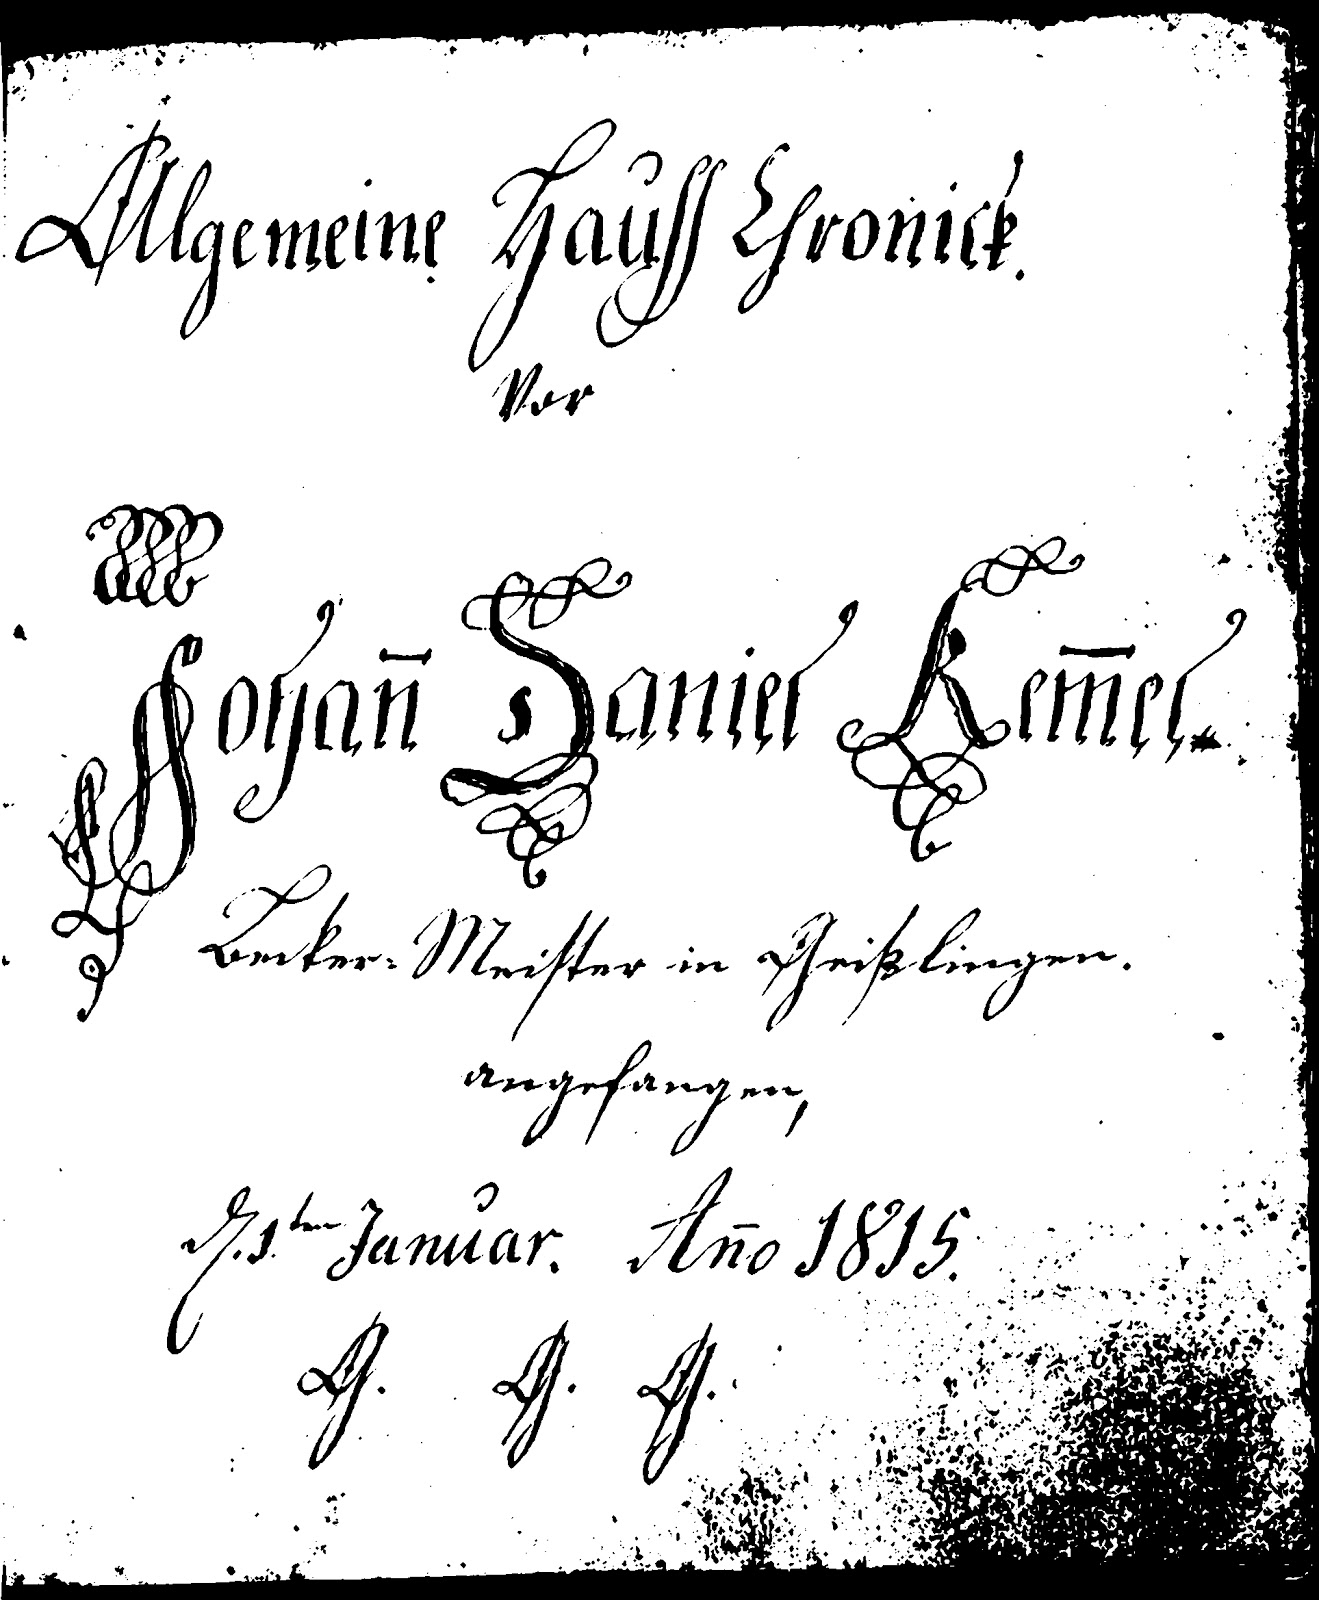 Algemeine Hauss Chronick.
Vor
Johan̄ Daniel Kem̄el.
Becker-Meister in Geißlingen.
angefangen,
d. 1.ten Januar. An̄o 1815.
G. G. G.